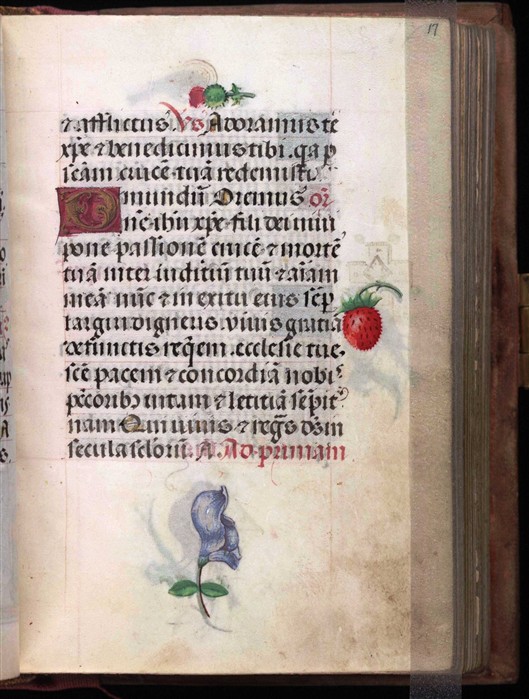 17
& afflictus. Vs Adoramus te
xp̄e & benedicimus tibi. q̄a p̄
scām crucē tuā redemisti
mundū Oremus or̄
D nē ihū xp̄e fili dei uiui
pone passionē crucē & mortē
tuā inter iudiciū tuū & aīam
meā nūc & in exitu eius & sēp
largiri digneris viuis gratiā
defunctis reqēm ecclesie tue.
scē pacem & concordiā nobis
pc̄coribꝫ uitam & letitiā sēpit̄
nam Qui uiuis & regs ds̄ in
secula sclorū. A. Ad primam